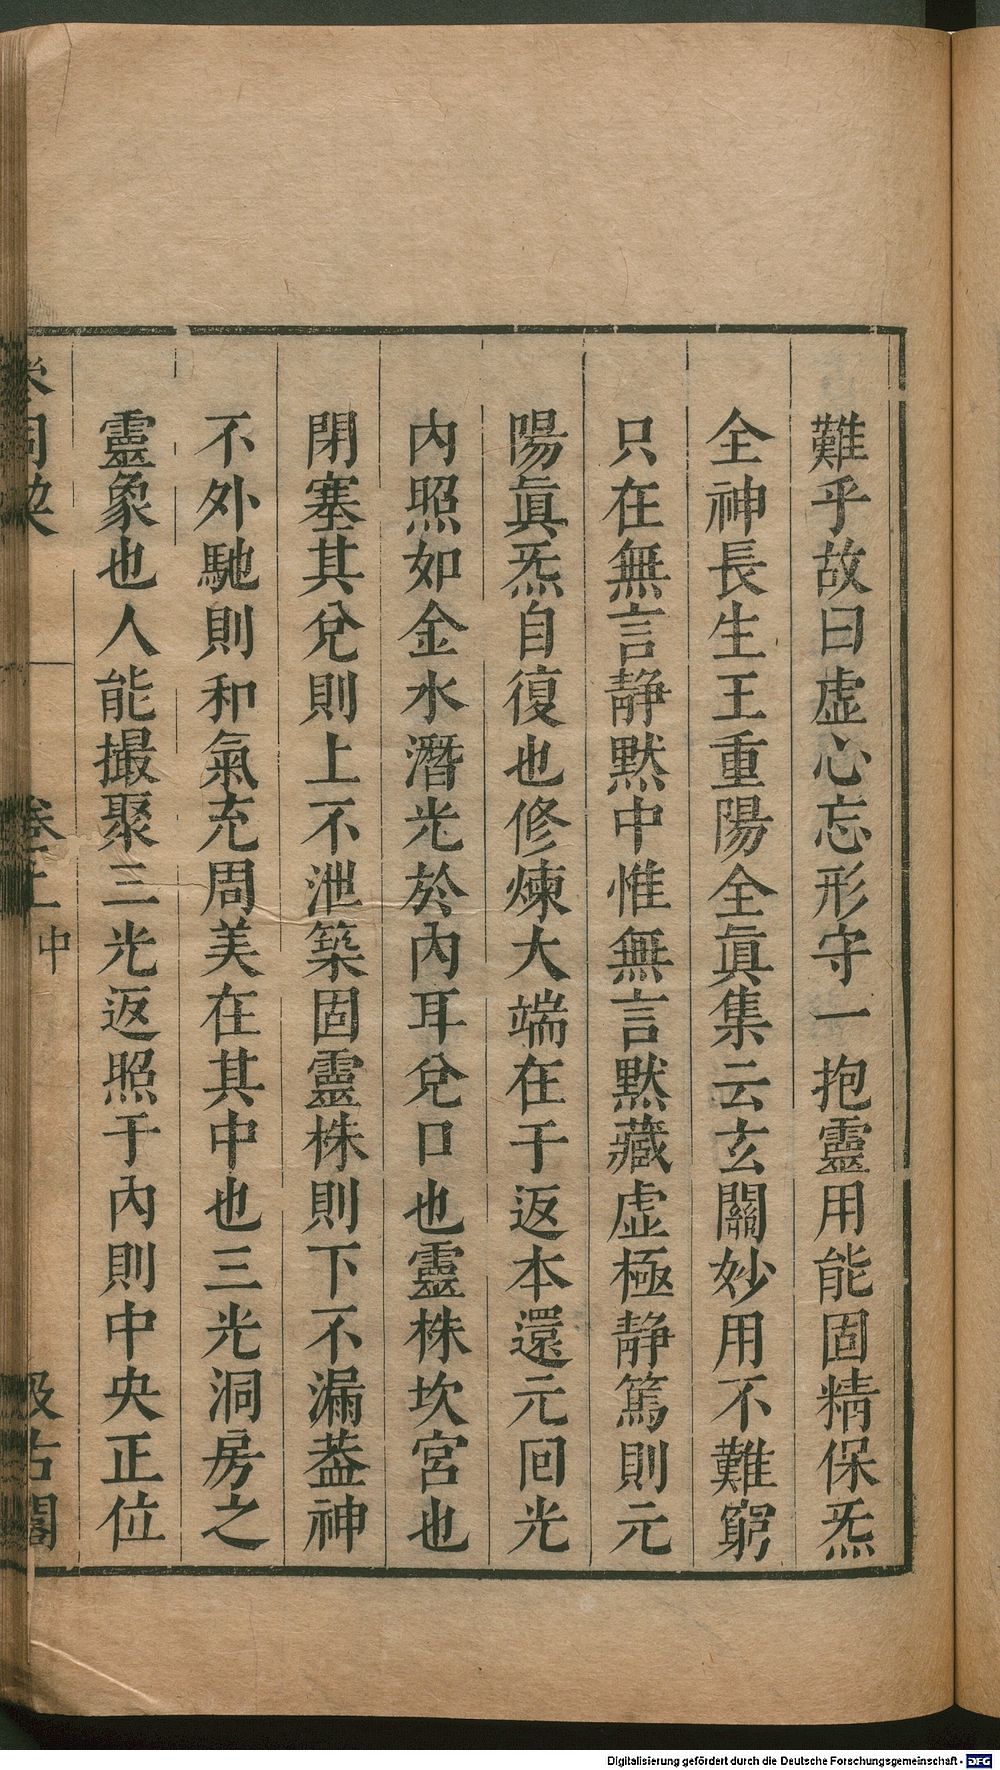 難乎故曰虛心忘形守一抱靈用能固精保炁
全神長生王重陽全眞集云玄關妙用不難窮
只在無言静默中惟無言默藏虛極静篤則元
陽眞炁自復也修煉大端在于返本還元囘光
內照如金水潛光於內耳兌口也靈株坎宮也
閉塞其兌則上不泄築固靈株則下不漏葢神
不外馳則和氣充周美在其中也三光洞房之
靈象也人能撮聚三光返照于內則中央正位
同契
卷上中
汲古閣
Digitalisierung gefördert durch die Deutsche Forschungsgemeinschaft - DFG